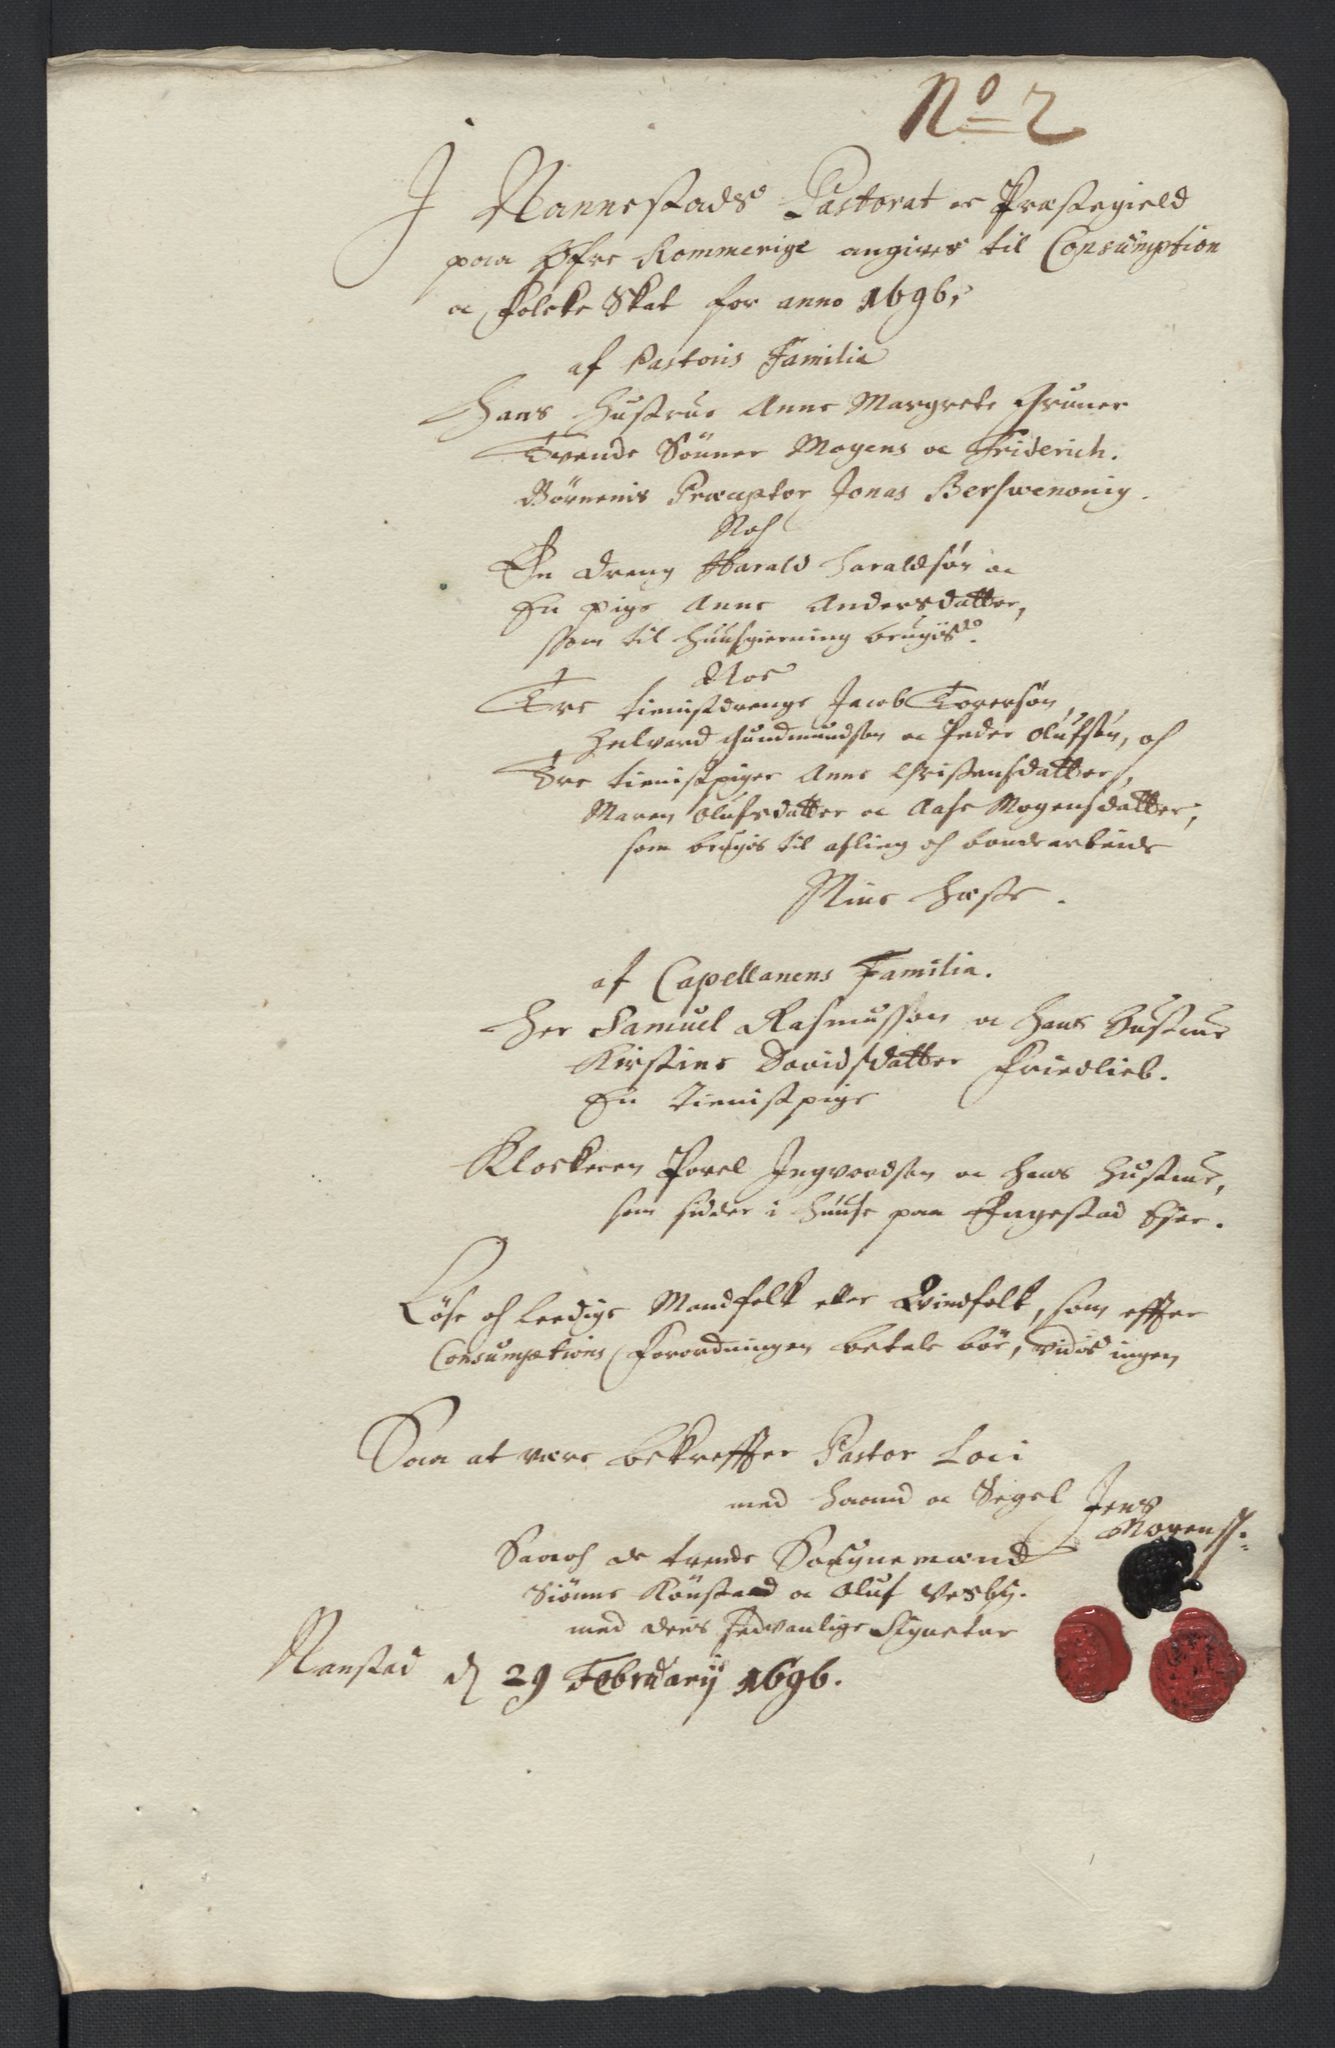 No 2
I Nannestads Pastorat oc Præstegield
paa Øfre Rommerige angives til Consumption
oc Folcke Skat for anno 1696,
af Pastoris Familia
Hans Hustrue Anne Margrete Gruner
Tvende Sönner Mogens oc Friderich.
Börnenis Præceptor Jonas
Noch
En dreng Harald Haraldsön oc
En pige Anne Andersdatter,
som til Huusgierning brugis.
Noc
Tre tienistdrenge Jacob Torersön,
Helvard Gundmundsön oc Peder Olufsön, och
Tre tienistpiger Anne Christensdatter,
Maren Olufsdatter oc Aase Mogensdatter,
som brugis til afling och bondearbeide
Niue Heste.
af Capellanens Familia.
Her Samuel Rasmussön oc Hans Hustrue
Kirstine Davidsdatter Friedlieb.
En tienistpige
Klockeren Povel Ingvordsen oc hans Hustrue,
som sidder i Huuse paa Engestad Eier.
Löse och Leedige Mandfolk eller Qvindfolk, som effter
Consumptions Forordningen betale bör, vides ingen
Saa at være bekreffter Pastor Loci
med Haand oc Segel Jens
Mogenss:
Saa och de tvende Sougnemænd
Siönne Könstad oc Oluf Vesby.
med deris sedvanlige Signeter
Nanstad d 29 Februarij 1696.